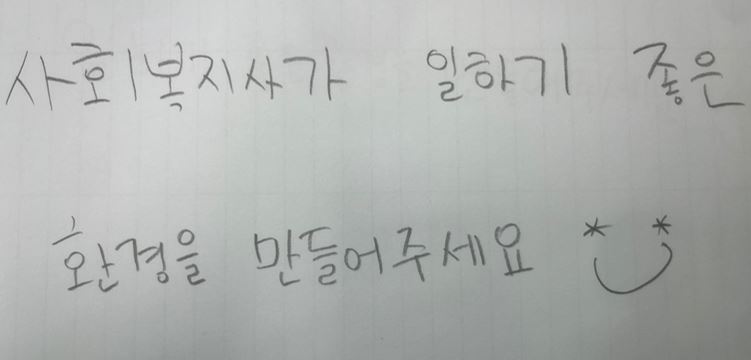 사회복지사가 일하기 좋은
환경을 만들어주세요